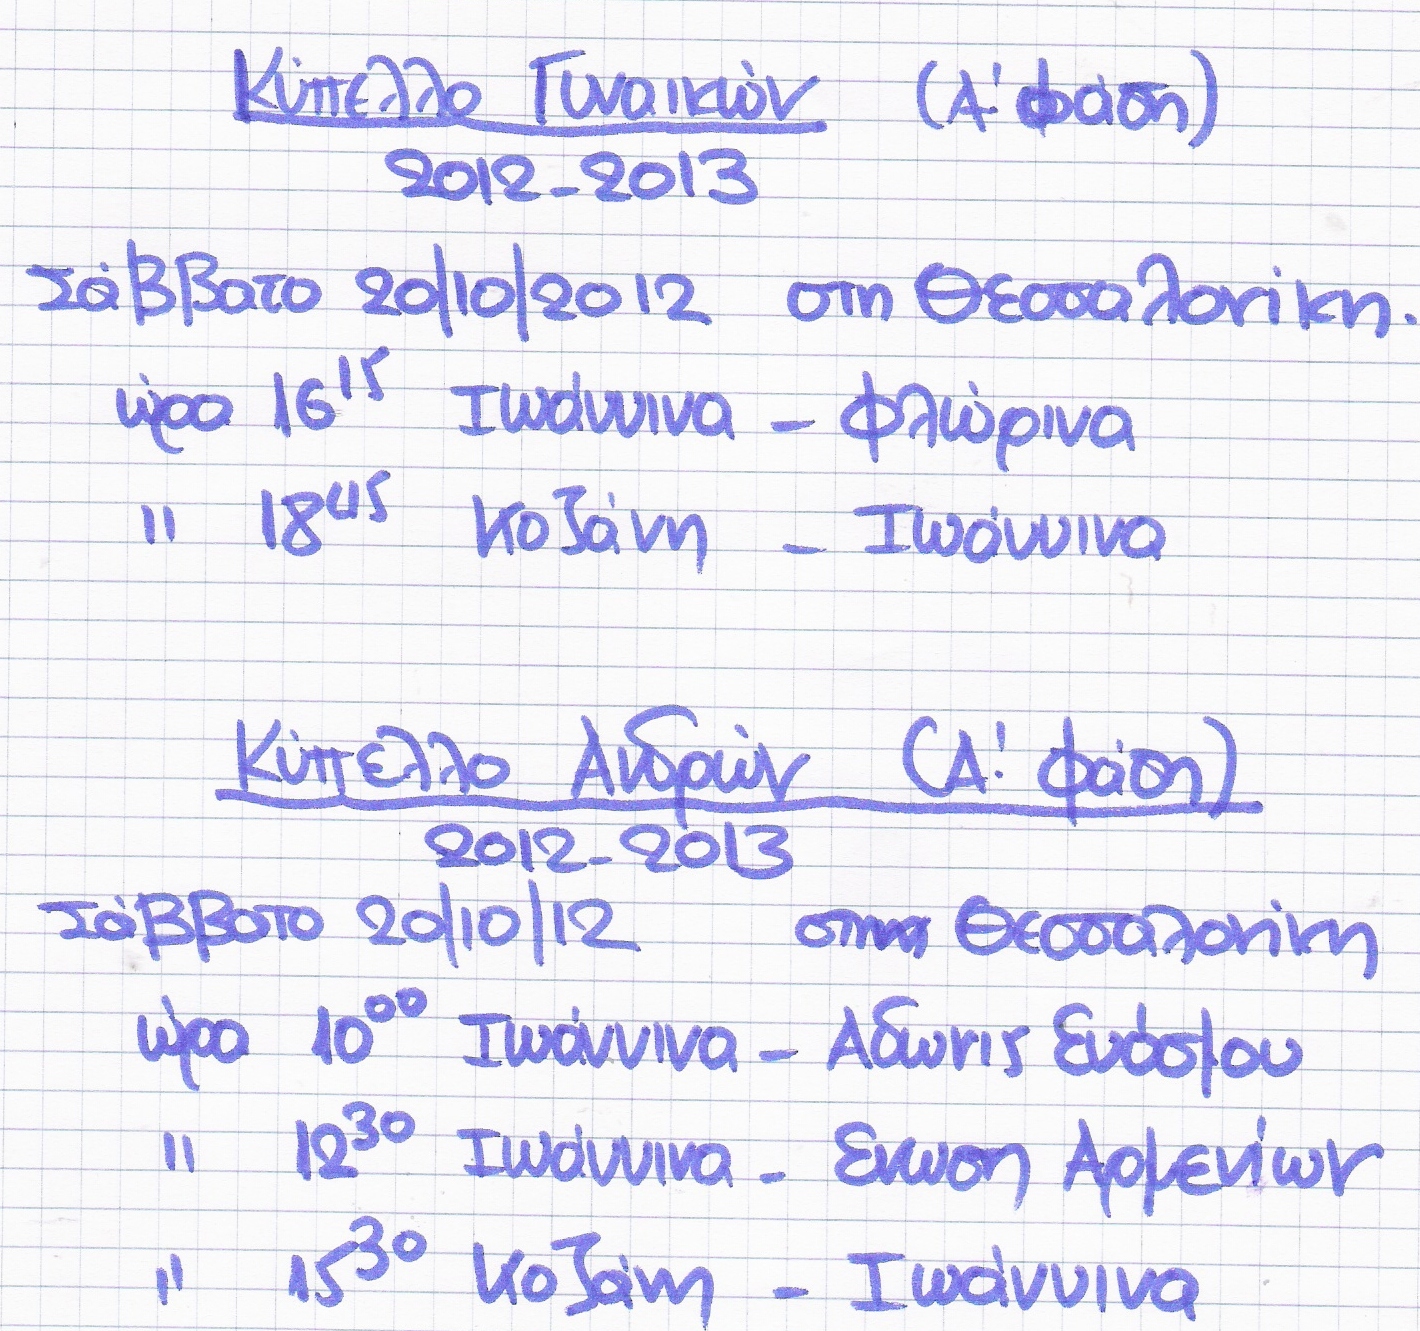 Κύπελλο Γυναικών (Α' φάση)
2012-2013
Σάββατο 20/10/2012 στη Θεσσαλονίκη.
ώρα 16 15 Ιωάννινα - Φλώρινα
" 18 45 Κοζάνη - Ιωάννινα
Κύπελλο Ανδρών (Α' φάση)
2012-2013
Σάββατο 20/10/12 στη Θεσσαλονίκη
ώρα 10 00 Ιωάννινα - Αδωνις Ευόσμου
" 12 30 Ιωάννινα - Ενωση Αρμενίων
" 15 30 Κοζάνη - Ιωάννινα